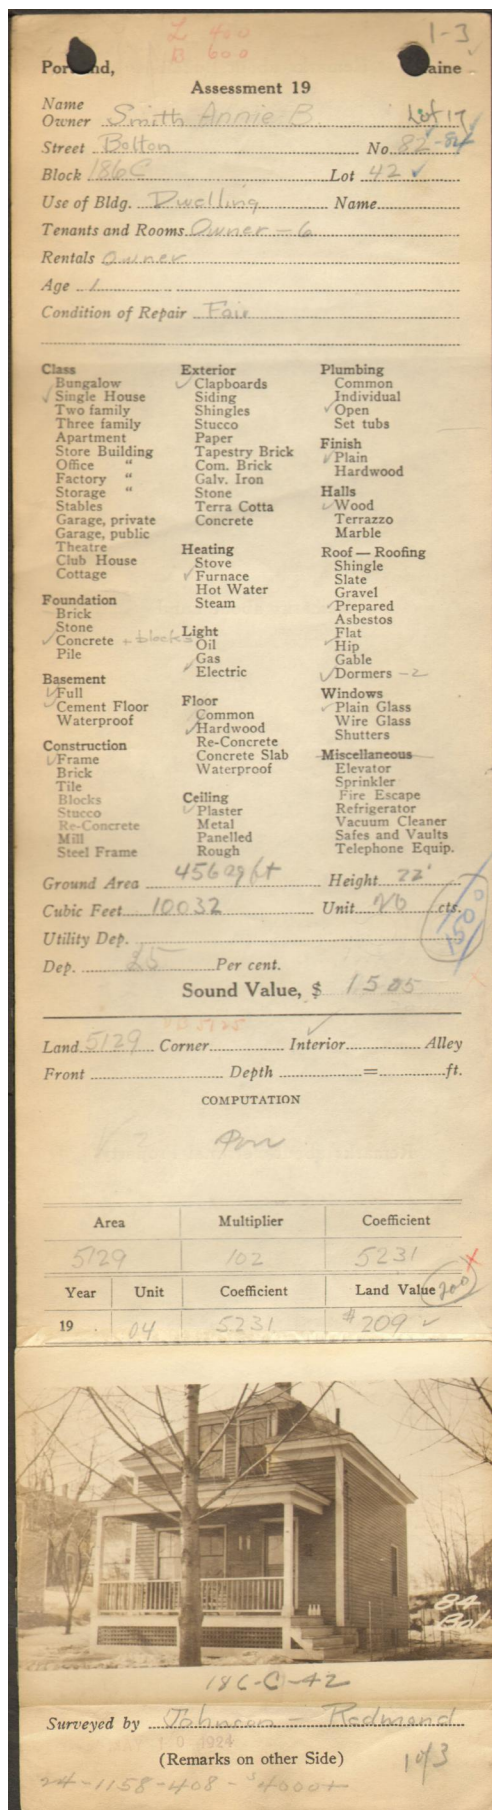 L 400
B 600
1-3
Portland, Maine
Assessment 19
Name
Owner Smith Annie B Lot 17
Street Bolton No. 82-84
Block 186C Lot 42
Use of Bldg. Dwelling Name
Tenants and Rooms Owner - 6
Rentals Owner
Age 1
Condition of Repair Fair
Class
Bungalow
Single House
Two family
Three family
Apartment
Store Building
Office "
Factory "
Storage "
Stables
Garage, private
Garage, public
Theatre
Club House
Cottage
Foundation
Brick
Stone
Concrete + blocks
Pile
Basement
Full
Cement Floor
Waterproof
Construction
Frame
Brick
Tile
Blocks
Stucco
Re-Concrete
Mill
Steel Frame
Exterior
Clapboards
Siding
Shingles
Stucco
Paper
Tapestry Brick
Com. Brick
Galv. Iron
Stone
Terra Cotta
Concrete
Heating
Stove
Furnace
Hot Water
Steam
Light
Oil
Gas
Electric
Floor
Common
Hardwood
Re-Concrete
Concrete Slab
Waterproof
Ceiling
Plaster
Metal
Panelled
Rough
Plumbing
Common
Individual
Open
Set tubs
Finish
Plain
Hardwood
Halls
Wood
Terrazzo
Marble
Roof — Roofing
Shingle
Slate
Gravel
Prepared
Asbestos
Flat
Hip
Gable
Dormers - 2
Windows
Plain Glass
Wire Glass
Shutters
Miscellaneous
Elevator
Sprinkler
Fire Escape
Refrigerator
Vacuum Cleaner
Safes and Vaults
Telephone Equip.
Ground Area 456 sq ft Height 22'
Cubic Feet 10032 Unit 20 cts.
1500
Utility Dep.
Dep. 25 Per cent.
Sound Value, $ 1505
Land 5129 Corner Interior Alley
Front Depth = ft.
COMPUTATION
Area Multiplier Coefficient
5129 102 5231
Year Unit Coefficient Land Value 200
19 04 5231 $209
84
Bol
186-C-42
Surveyed by Johnson - Redmond
10 1924
(Remarks on other Side) 1 of 3
24-1158-408-$4000+